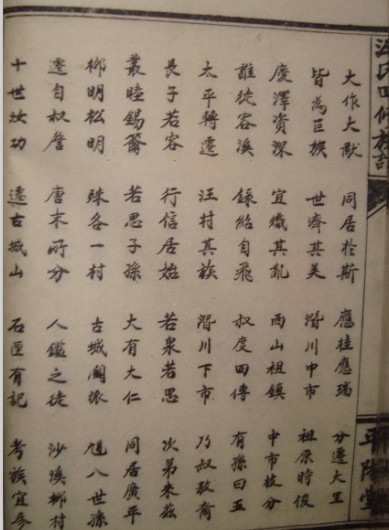 平陽堂
大作大猷 同居於斯 應桂應瑞 分遷大里
皆為巨族 世濟其美 潛川中市 祖原時俊
慶澤資深 宜熾其 西山祖鎮 中市枝分
容溪 紹自飛 叔度四傳 有孫曰五
太平轉遷 汪村其族 潛川下市 乃叔敖裔
長子若容 行信居始 若泉若思 次弟來茲
叢睦錫 若思子孫 大有大仁 同居廣平
明松明 殊各一村 古城派 八世孫
自叔詹 唐末所分 人鑑之徒 沙溪村
十世汝功 遷古城山 石匣有記 考族宜參